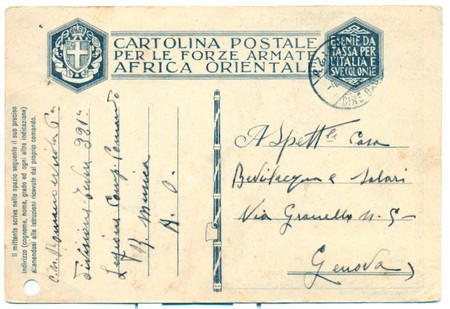 CARTOLINA POSTALE
PER LE FORZE ARMATE
AFRICA ORIENTALE
ESENTE DA
TASSA PER
L'ITALIA E
SVE COLONIE
Il mittente scriva nello spazio seguente il suo preciso
indirizzo (cognome, nome, grado ed ogni altra indicazione)
attenendosi alle istruzioni ricevute dal proprio comando.
221ª
Legione Comando
Musica
A. O.
A Spett.le Casa
Bevilacqua e Solari
Via Granello N. 5
Genova